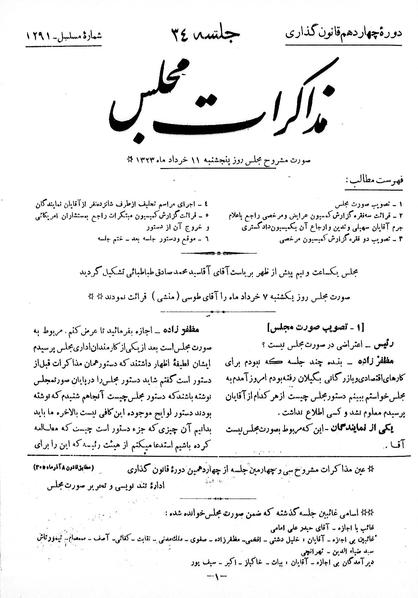 دورهٔ چهاردهم قانون گذاری
جلسه ۳۴
شمارهٔ مسلسل - ۱۲۹۱
مذاکرات مجلس
صورت مشروح مجلس روز پنجشنبه ۱۱ خرداد ماه ۱۳۲۳ *
فهرست مطالب:
۱ - تصویب صورت مجلس
۲ - قرائت سه فقره گزارش کمیسیون عرایض و مرخصی راجع باعلام
جرم آقایان سهیلی و تدین و ارجاع آن بکمیسیون دادگستری
۳ - تصویب دو فقره گزارش کمیسیون مرخصی
۴ - اجرای مراسم تحلیف از طرف شانزده نفر از آقایان نمایندگان
۵ - قرائت گزارش کمیسیون مبتکرات راجع بمستشاران امریکائی
و خروج آن از دستور
۶ - موقع و دستور جلسه بعد - ختم جلسه
مجلس یکساعت و نیم پیش از ظهر بریاست آقای آقا سید محمد صادق طباطبائی تشکیل گردید
صورت مجلس روز یکشنبه ۷ خرداد ماه را آقای طوسی (منشی) قرائت نمودند **
[۱ - تصویب صورت مجلس]
رئیس - اعتراضی در صورت مجلس نیست ؟
مظفرزاده - بنده چند جلسه که نبودم برای
کارهای اقتصادی و بازرگانی بگیلان رفته بودم امروز آمدم به
مجلس خواستم ببینم دستور چیست از هر کدام از آقایان
پرسیدم معلوم نشد و کسی اطلاع نداشت .
یکی از نمایندگان - این که مربوط بصورت مجلس نیست
آقا .
مظفرزاده - اجازه بفرمائید تا عرض کنم. مربوط به
صورت مجلس است بعد از یکی از کارمندان اداری مجلس پرسیدم
ایشان لطیفهٔ اظهار داشتند که دستور همان مذاکرات قبل از
دستور است گفتم شاید دستور مجلس را در پایان صورت مجلس
نوشته باشند که دستور مجلس چیست آنجا هم شنیدم که نوشته
بودند دستور لوایح موجوده این کافی نیست بالاخره ما باید
بدانیم آن چیزی که جزء دستور است چیست که مطالعه
کرده باشیم استدعا میکنم از هیئت رئیسه که این را برای
* عین مذاکرات مشروح سی و چهارمین جلسه از چهاردهمین دورهٔ قانون گذاری
(مطابق قانون ۸ آذر ماه ۳۰۵)
ادارهٔ تند نویسی و تحریر صورت مجلس
** اسامی غائبین جلسه گذشته که ضمن صورت مجلس خوانده شده :
غائب با اجازه - آقای حیدر علی امامی
غائبین بی اجازه - آقایان : خلیل دشتی - افخمی - مظفرزاده - صفوی - ملک مدنی - نقابت - کفائی - آصف - صمصام - تیمورتاش
سید ضیاء الدین - تهرانچی
دیر آمدگان بی اجازه - آقایان : بیات - خاکباز - اکبر - سیف پور
-۱-